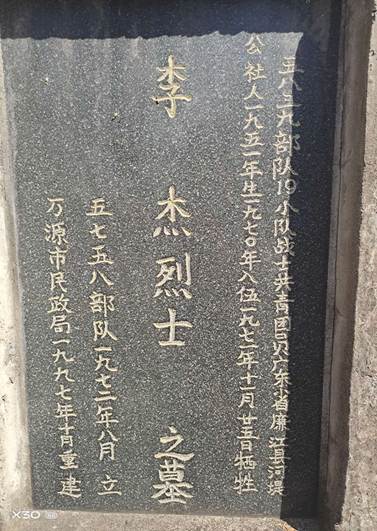 五八三九部队19小队战士共青团员广东省廉江县河堤
公社人一九五一年生一九七〇年入伍一九七二年十一月廿五日牺牲
李杰烈士之墓
五七五八部队一九七二年八月立
万源市民政局一九九七年十月重建
X30